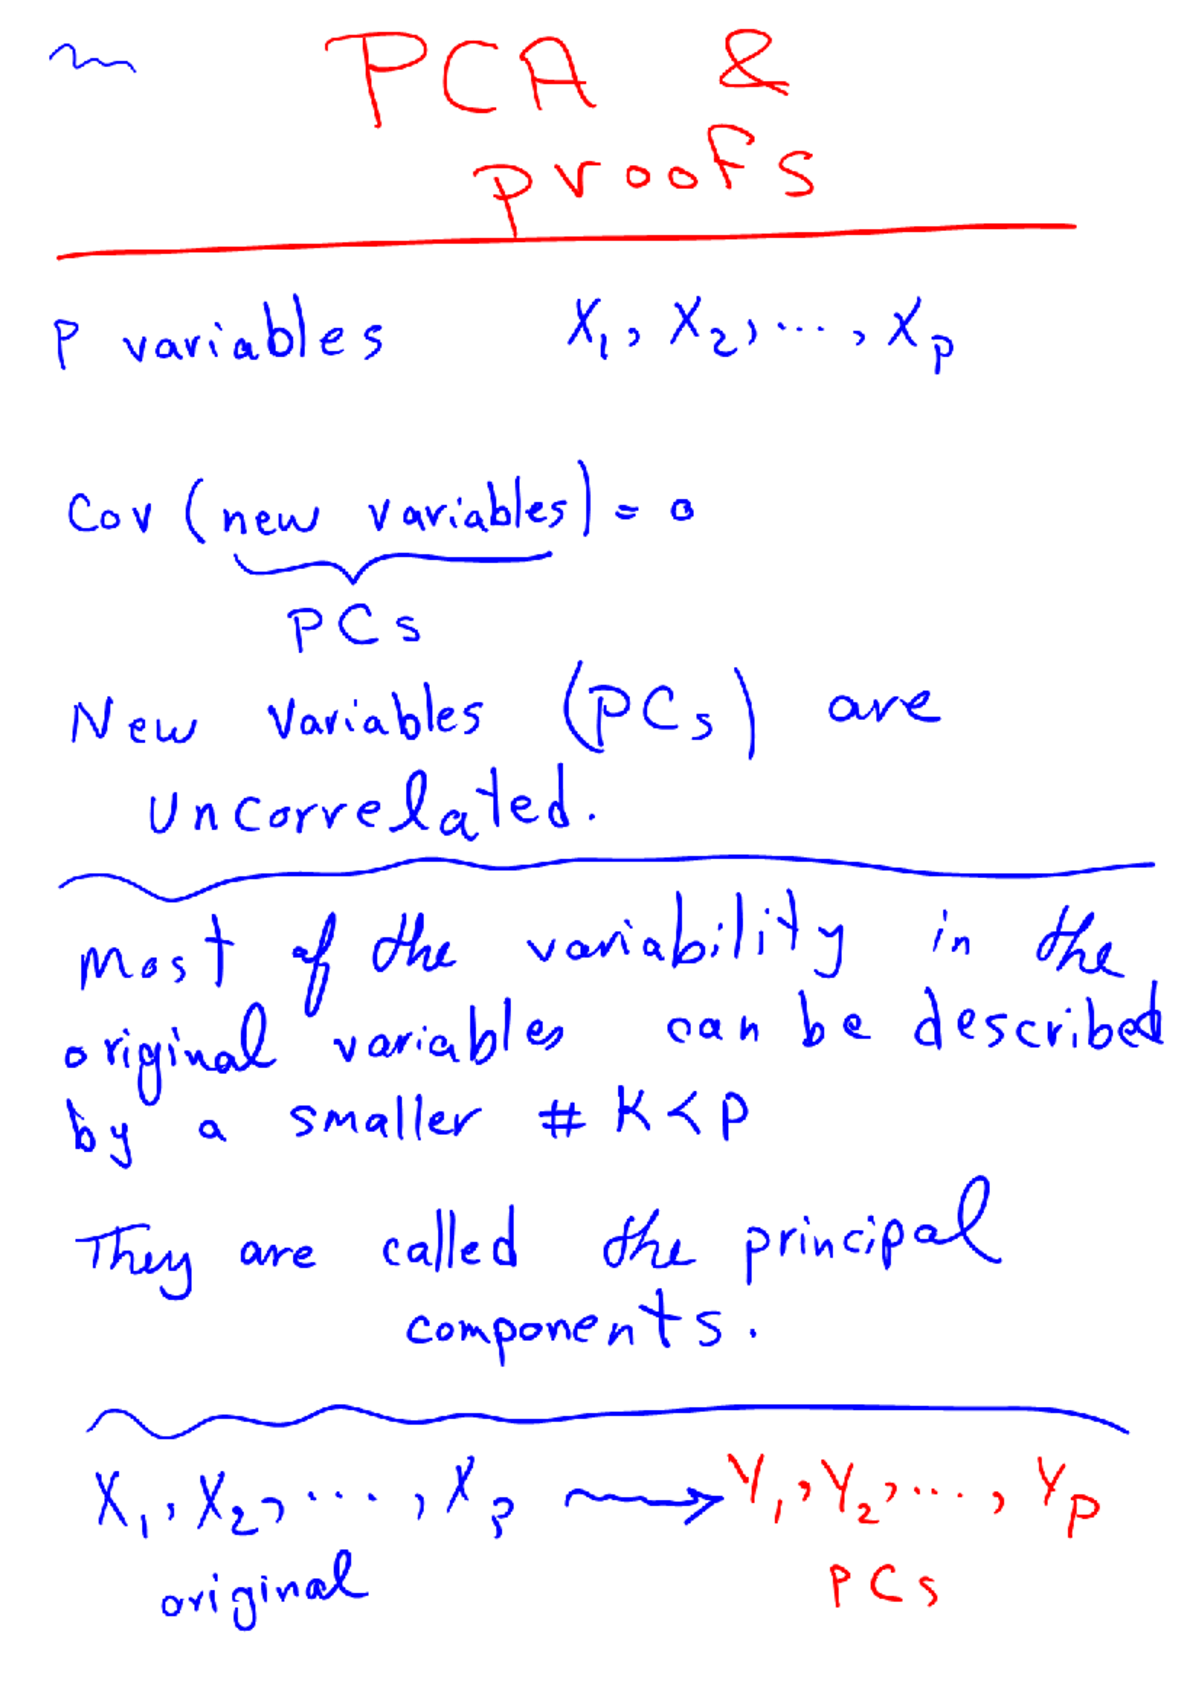 PCA &
proofs
P variables X₁, X₂, ..., Xp
Cov (new variables) = 0
PCs
New Variables (PCs) are
Uncorrelated.
Most of the variability in the
original variables can be described
by a smaller # K < P
They are called the principal
components.
X₁, X₂, ..., Xp → Y₁, Y₂, ..., Yp
original PCs